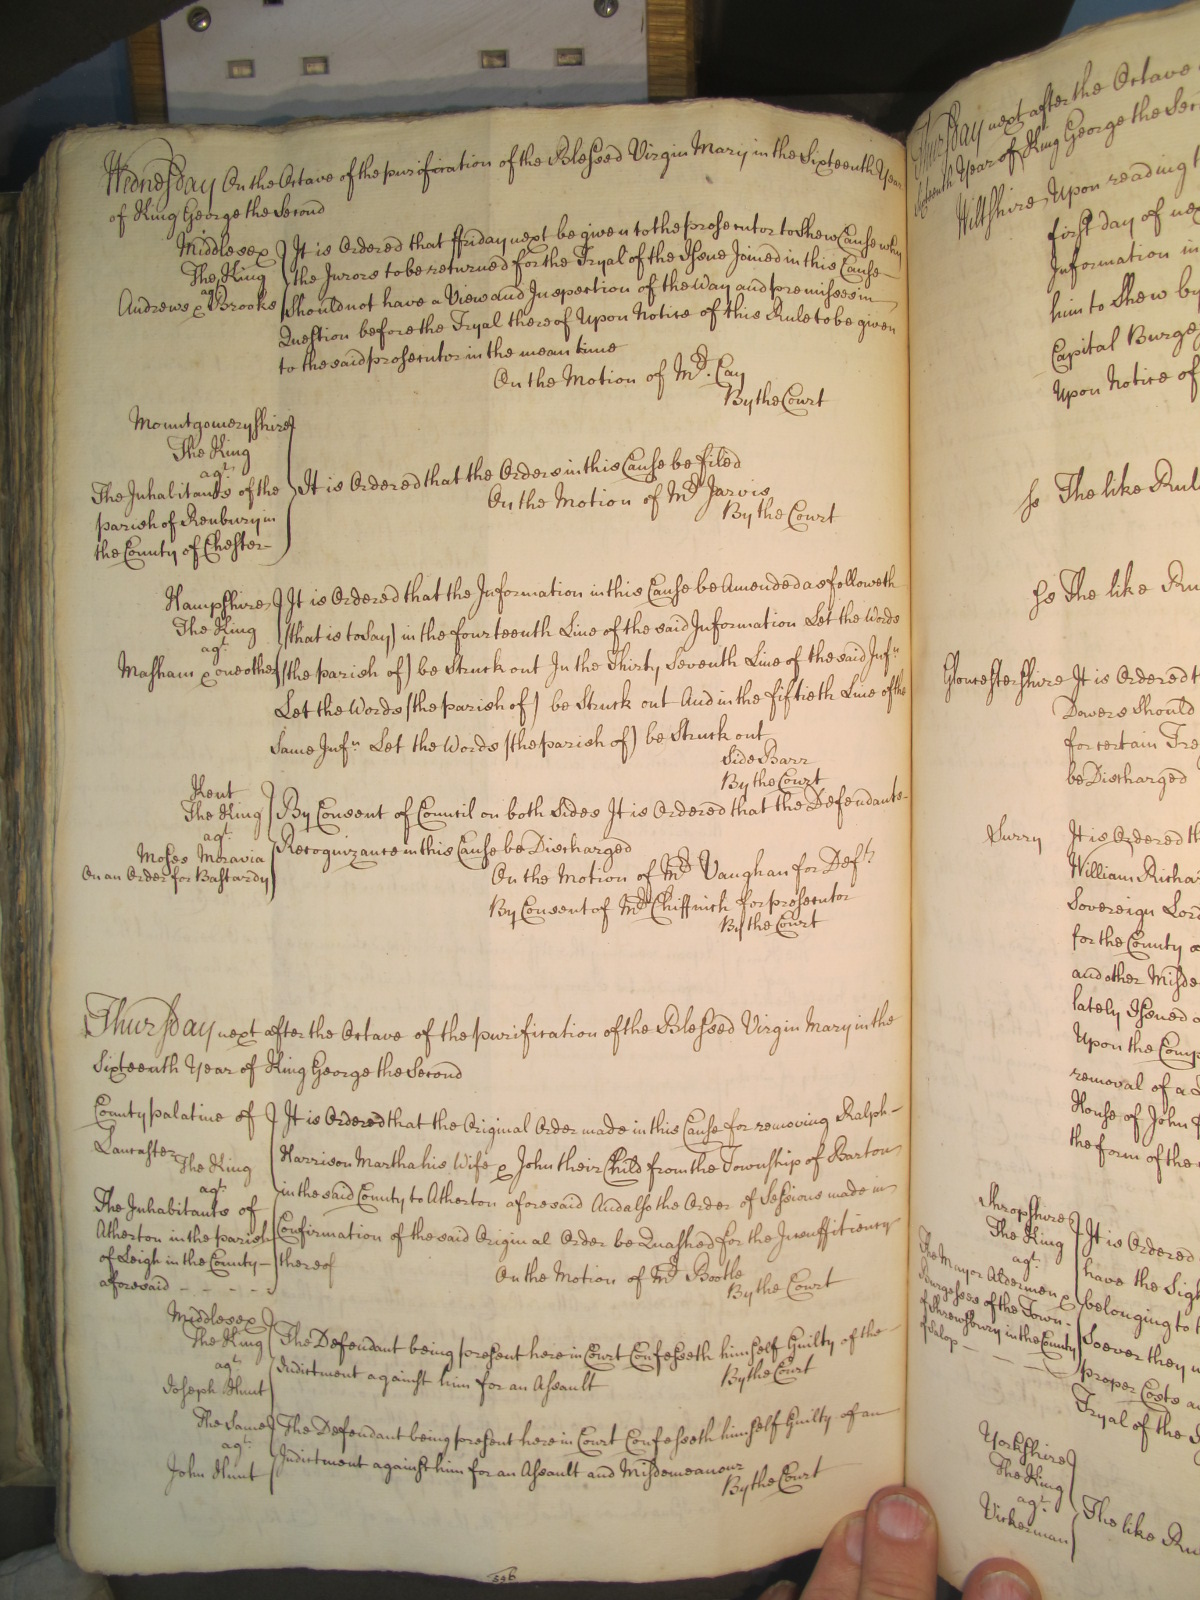 Wednesday On the Octave of the purification of the Blessed Virgin Mary in the Sixteenth Year
of King George the Second
Middlesex
The King
agt
Andrews & Brooke
It is Ordered that ffriday next be given to the prosecutor to Shew Cause why
the Jurors to be returned for the Tryal of the Issue Joined in this Cause
Should not have a View and Inspection of the Way and premisses in
Question before the Tryal thereof Upon Notice of this Rule to be given
to the said prosecutor in the mean time
On the Motion of Mr. Cay
By the Court
Mountgomeryshire
The King
agt.
The Inhabitants of the
parish of Renbury in
the County of Chester
It is Ordered that the Orders in this Cause be filed
On the Motion of Mr Jarvis
By the Court
Hampshire
The King
agt.
Masham & one other
It is Ordered that the Information in this Cause be Amended as followeth
(that is to Say) in the fourteenth Line of the said Information Let the Words
(the parish of) be Struck out In the Thirty Seventh Line of the said Infn
Let the Words (the parish of) be Struck out And in the fiftieth Line of the
Same Infn Let the Words (the parish of) be Struck out
Side Barr
By the Court
Kent
The King
agt.
Moses Moravia
On an Order for Bastardy
By Consent of Council on both Sides It is Ordered that the Defendants
Recognizance in this Cause be Discharged
On the Motion of Mr Vaughan for Deft
By Consent of Mr Chiffinch for prosecutor
By the Court
Thursday next after the Octave of the purification of the Blessed Virgin Mary in the
Sixteenth Year of King George the Second
County palatine of
Lancaster
The King
agt
The Inhabitants of
Atherton in the parish
of Leigh in the County
aforesaid
It is Ordered that the Original Order made in this Cause for removing Ralph
Harrison Martha his Wife & John their Child from the Township of Barton
in the said County to Atherton aforesaid And also the Order of Sessions made in
Confirmation of the said Original Order be Quashed for the Insufficiency
thereof
On the Motion of Mr Bootle
By the Court
Middlesex
The King
agt
Joseph Hunt
The Defendant being present here in Court Confesseth himself Guilty of the
Indictment against him for an Assault
By the Court
The Same
agt
John Hunt
The Defendant being present here in Court Confesseth himself Guilty of an
Indictment against him for an Assault and Misdemeanour
By the Court
Thursday next after the Octave
Sixteenth Year of King George the Sec
Wiltshire Upon reading
first day of
Information in
him to Shew by
Capital Burge
Upon Notice of
The like Rul
The like Ru
Gloucestershire It is Ordered t
Dowers Should
for certain Tre
be Discharged
Surry It is Ordered th
William Richa
Sovereign Lord
for the County
and other Misde
lately Issued
Upon the Comp
removal of a
House of John
the form of the
Shropshire
The King
agt.
The Mayor Aldermen &
Burgesses of the Town
of Shrewsbury in the County
of Salop
It is Ordered
have the Sigh
belonging to t
Soever they
proper Costs a
Tryal of the
Yorkshire
The King
agt.
Vickerman
The like Ru